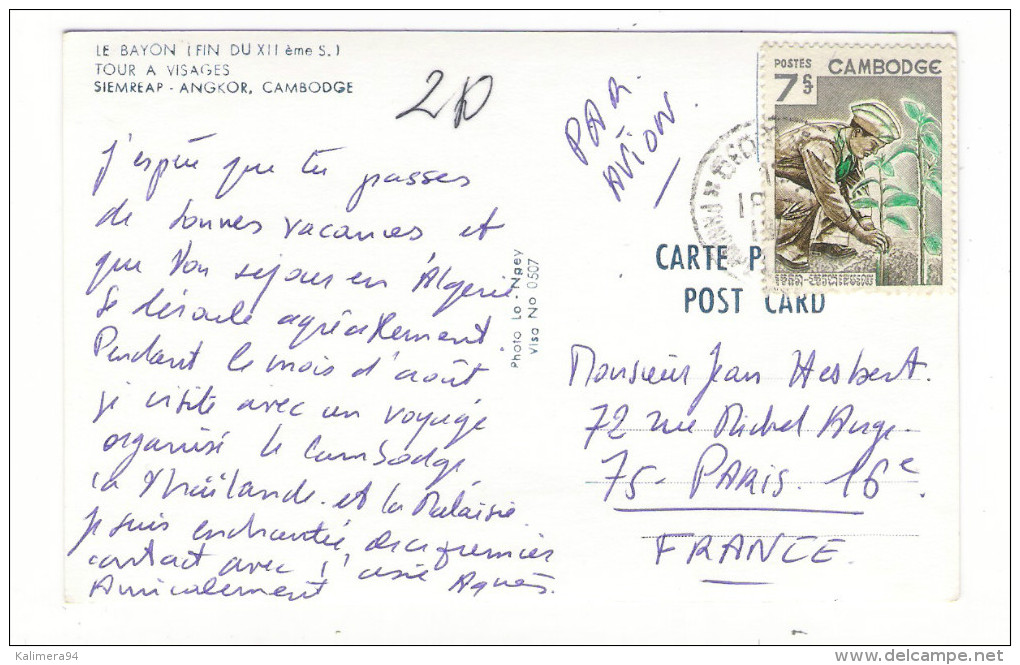 LE BAYON (FIN DU XII ème S.)
TOUR A VISAGES
SIEMREAP - ANGKOR, CAMBODGE
20
j'espère que tu passes
de bonnes vacances et
que ton séjour en Algérie
se déroule agréablement.
Pendant le mois d'août
je visite avec un voyage
organisé le Cambodge
la Thaïlande et la Malaisie.
je suis enchantée de ce premier
contact avec l'Asie
Amicalement Agnès.
Photo Lo-Ngey
Visa No 0507
PAR
AVION
POSTES CAMBODGE
7
CARTE P
POST CARD
Monsieur Jean Hesbert.
72 rue Michel Ange -
75 - PARIS. 16e.
FRANCE.
Kalimera94
www.delcampe.net